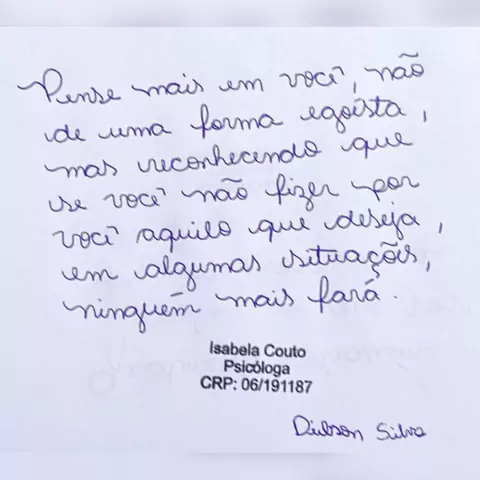 Pense mais em você, não
de uma forma egoísta,
mas reconhecendo que
se você não fizer por
você aquilo que deseja,
em algumas situações,
ninguém mais fará.
Isabela Couto
Psicóloga
CRP: 06/191187
Silva